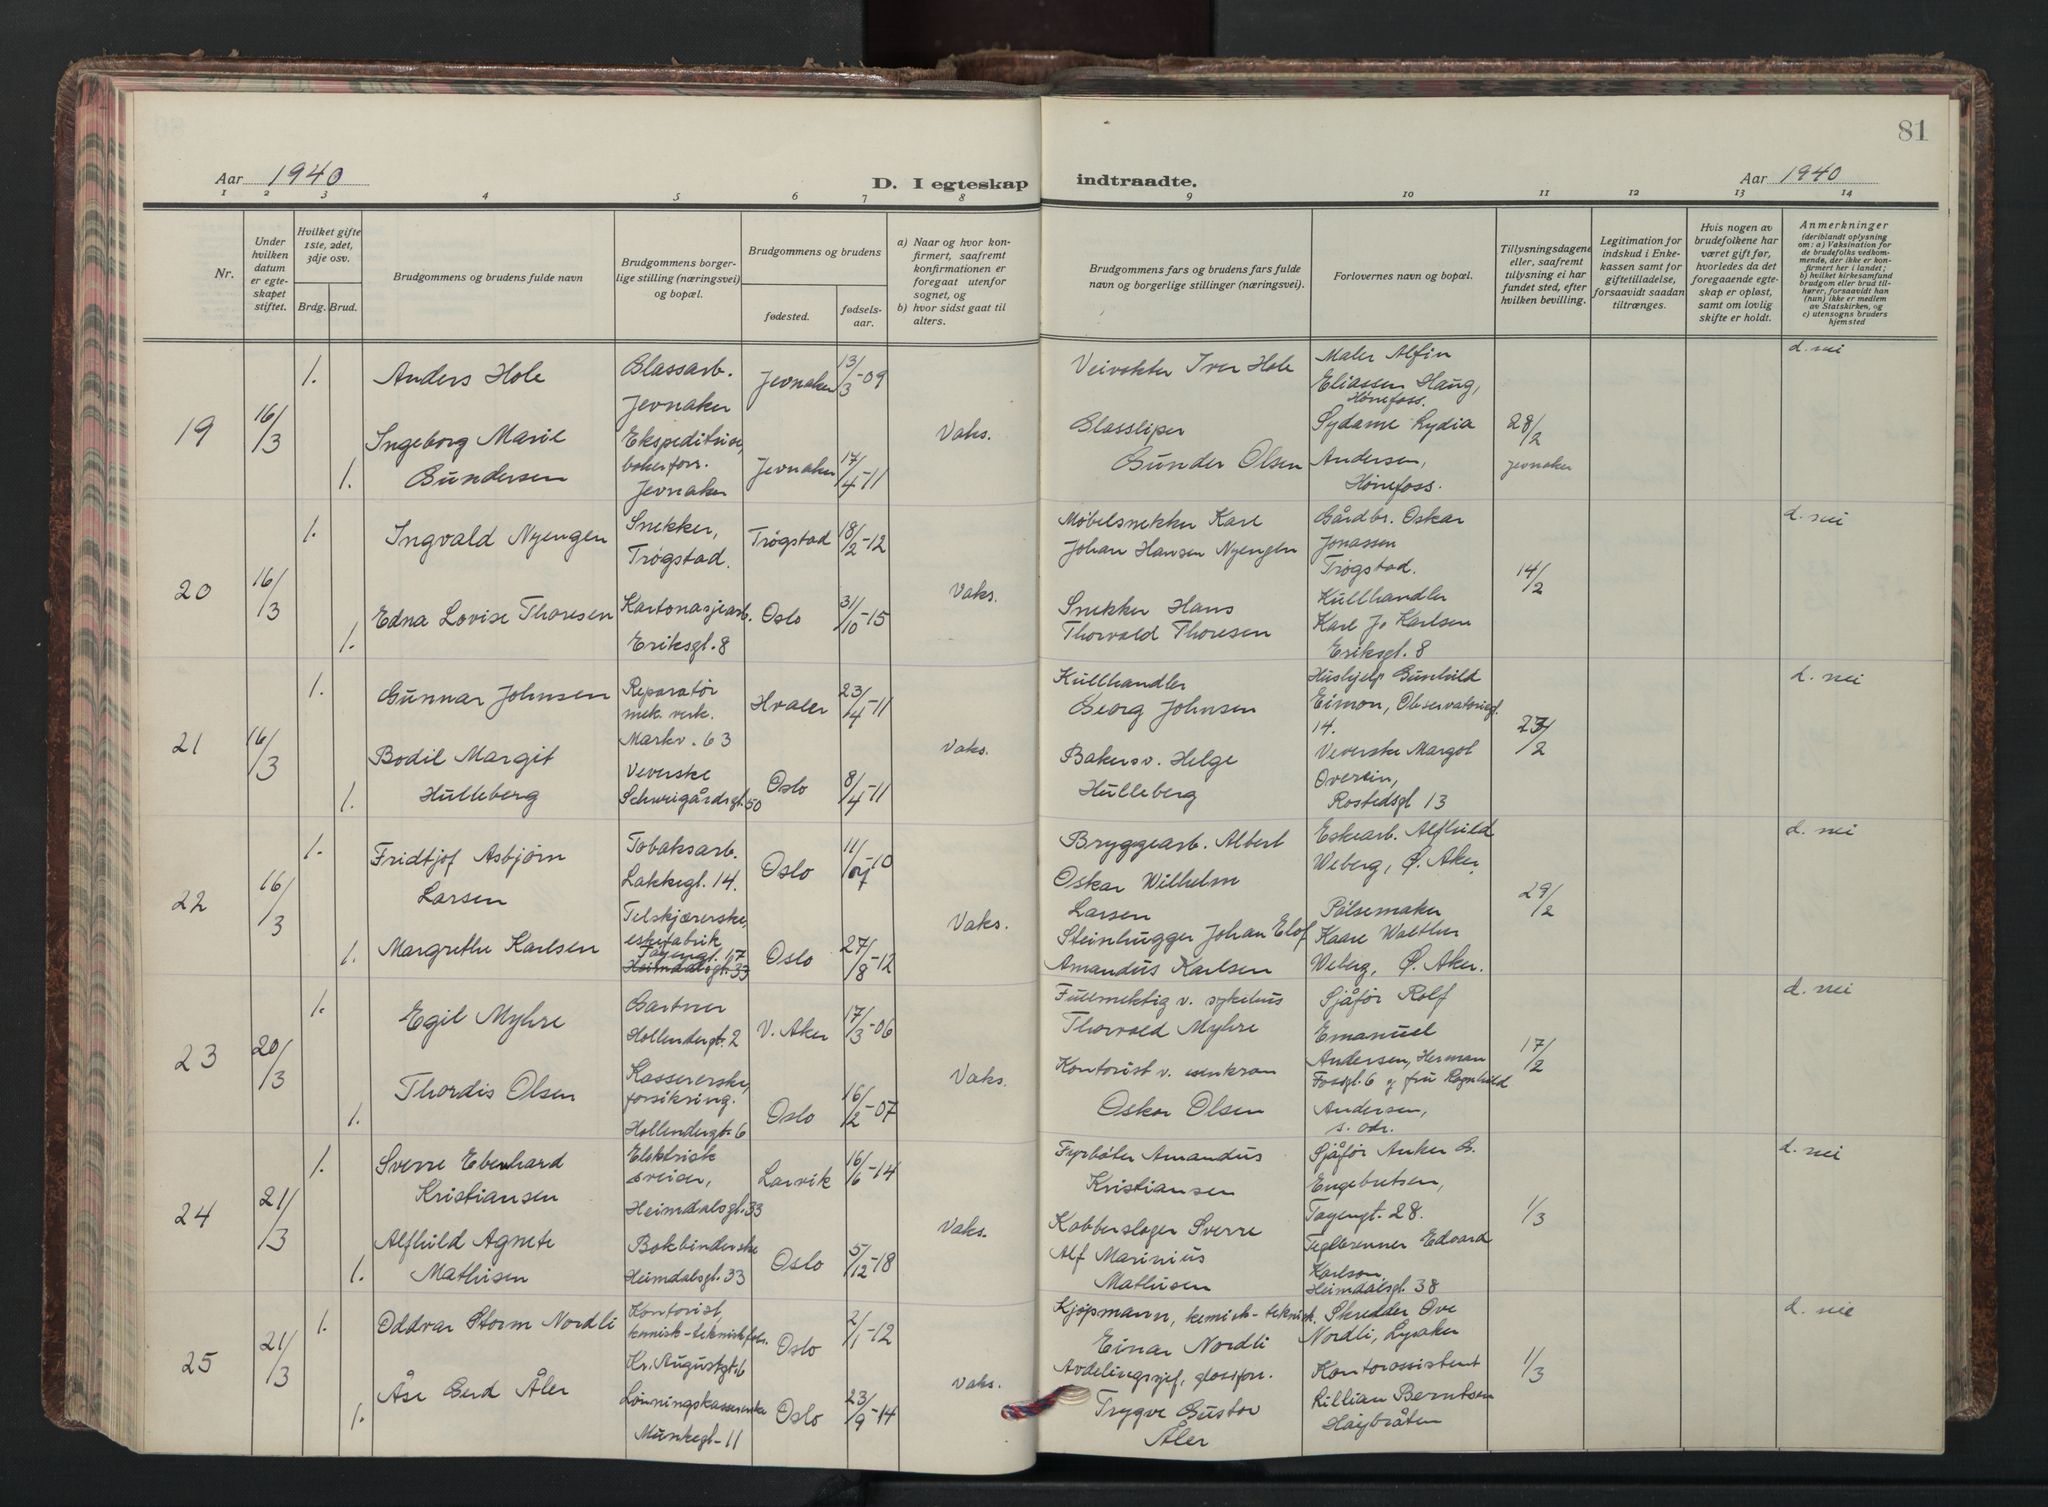 81
Aar 1940
D. I egteskap indtraadte.
Aar 1940
1 2 3 4 5 6 7 8 9 10 11 12 13 14
Nr.
Under hvilken datum er egteskapet stiftet.
Hvilket gifte 1ste, 2det, 3dje osv.
Brdg. Brud.
Brudgommens og brudens fulde navn
Brudgommens borgerlige stilling (næringsvei) og bopæl.
Brudgommens og brudens
fødested.
fødselsaar.
a) Naar og hvor konfirmert, saafremt konfirmationen er foregaat utenfor sognet, og
b) hvor sidst gaat til alters.
Brudgommens fars og brudens fars fulde navn og borgerlige stillinger (næringsvei).
Forlovernes navn og bopæl.
Tillysningsdagene eller, saafremt tillysning ei har fundet sted, efter hvilken bevilling.
Legitimation for indskud i Enkekassen samt for giftetilladelse, forsaavidt saadan tiltrænges.
Hvis nogen av brudefolkene har været gift før, hvorledes da det foregaaende egteskap er opløst, samt om lovlig skifte er holdt.
Anmerkninger
(deriblandt oplysning om: a) Vaksination for de brudefolks vedkommende, der ikke er konfirmert her i landet; b) hvilket kirkesamfund brudgom eller brud tilhører, forsaavidt han (hun) ikke er medlem av Statskirken, og c) utensogns bruders hjemsted
19
16/3
1.
Anders Hole
Glassarb.
Jevnaker
Jevnaker
13/3-09
Veivokter Iver Hole
Maler Alfin
Eliassen Haug,
Hønefoss.
d. nei
1.
Ingeborg Marie
Gundersen
Ekspeditrise,
bakerforr.
Jevnaker
Jevnaker
17/4-11
Vaks.
Glassliper
Gunder Olsen
Sydame Lydia
Andersen,
Hønefoss.
28/2
Jevnaker
20
16/3
1.
Ingvald Nyengen
Snekker,
Trøgstad.
Trøgstad
18/2-12
Møbelsnekker Karl
Johan Hansen Nyengen
Gårdbr. Oskar
Jonassen
Trøgstad.
d. nei
1.
Edna Lovise Thoresen
Kartonasjearb.
Eriksgt. 8
Oslo
31/10-15
Vaks.
Snekker Hans
Thorvald Thoresen
Kullhandler
Karl J. Karlsen
Eriksgt. 8
14/2
21
16/3
1.
Gunnar Johnsen
Reparatør
mek. verk.
Markv. 63
Hvaler
23/4-11
Kullhandler
Georg Johnsen
Hushjelp Gunhild
Eimon, Observatoriegt.
14.
d. nei
1.
Bodil Margit
Hulleberg
Veverske
Schweigårdsgt. 50
Oslo
8/4-11
Vaks.
Bakersv. Helge
Hulleberg
Veverske Margot
Oversin,
Rostedsgt 13
23/2
22
16/3
1.
Fridtjof Asbjørn
Larsen
Tobaksarb.
Lakkegt. 14.
Oslo
Bryggearb. Albert
Oskar Wilhelm
Larsen
Eskearb. Alfhild
Weberg, Ø. Aker.
d. nei
1.
Margrethe Karlsen
Tilskjærerske,
eskefabrik
Tøyengt. 17
Heimdalsgt. 33
Oslo
27/8-12
Vaks.
Steinhugger Johan Elof
Amandus Karlsen
Pølsemaker
Kaare Walther
Weberg, Ø. Aker.
29/2
23
20/3
1.
Egil Myhre
Gartner
Hollendergt. 2
V. Aker
17/3-06
Fullmektig v. sykehus
Thorvald Myhre
Sjåfør Rolf
Emanuel
Andersen, Herman
Fossgt. 6 og fru Ragnhild
Andersen,
s. adr.
d. nei
1.
Thordis Olsen
Kassererske,
forsikring.
Hollendergt. 6
Oslo
16/2-07
Vaks.
Kontorist v. isenkram
Oskar Olsen
17/2
24
21/3
1.
Sverre Eberhard
Kristiansen
Elektrisk
sveiser,
Heimdalsgt. 33
Larvik
16/6-14
Fyrbøter Amandus
Kristiansen
Sjåfør Anker G.
Engebretsen,
Tøyengt. 28.
d. nei
1.
Alfhild Agnete
Mathisen
Bokbinderske
Heimdalsgt. 33
Oslo
5/12-18
Vaks.
Kobberslager Sverre
Alf Marinius
Mathisen
Teglbrenner Edvard
Karlson,
Heimdalsgt 38
1/3
25
21/3
1.
Oddvar Storm Nordli
Kontorist,
kemisk-teknisk fabr.
Kr. Augustgt. 6
Oslo
2/1-12
Kjøpmann, kemisk-teknisk.
Einar Nordli
Skredder Ove
Nordli, Lysaker
d. nei
1.
Åse Gerd Åler
Lønningskassererske
Munkegt-11
Oslo
23/9-14
Vaks.
Avdelingssjef, glassforr.
Trygve Gustav
Åler
Kontorassistent
Lillian Berntsen
Høybråten
1/3